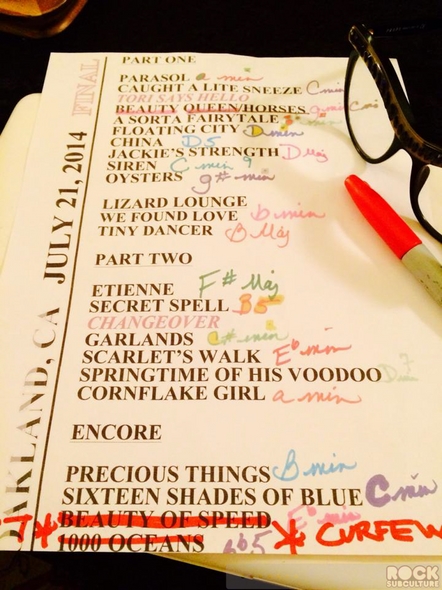 OAKLAND, CA JULY 21, 2014 FINAL
PART ONE
PARASOL a min
CAUGHT A LITE SNEEZE C min
TORI SAYS HELLO
BEAUTY QUEEN/HORSES a min C Maj
A SORTA FAIRYTALE
FLOATING CITY D min
CHINA D5
JACKIE'S STRENGTH D Maj
SIREN C min 9
OYSTERS g# min
LIZARD LOUNGE
WE FOUND LOVE b min
TINY DANCER B Maj
PART TWO
ETIENNE F# Maj
SECRET SPELL B5
CHANGEOVER
GARLANDS C# min
SCARLET'S WALK Eb min
SPRINGTIME OF HIS VOODOO D 7
CORNFLAKE GIRL a min
ENCORE
PRECIOUS THINGS B min
SIXTEEN SHADES OF BLUE C min
BEAUTY OF SPEED min
1000 OCEANS ab5 * CURFEW
ROCK
SUBCULTURE